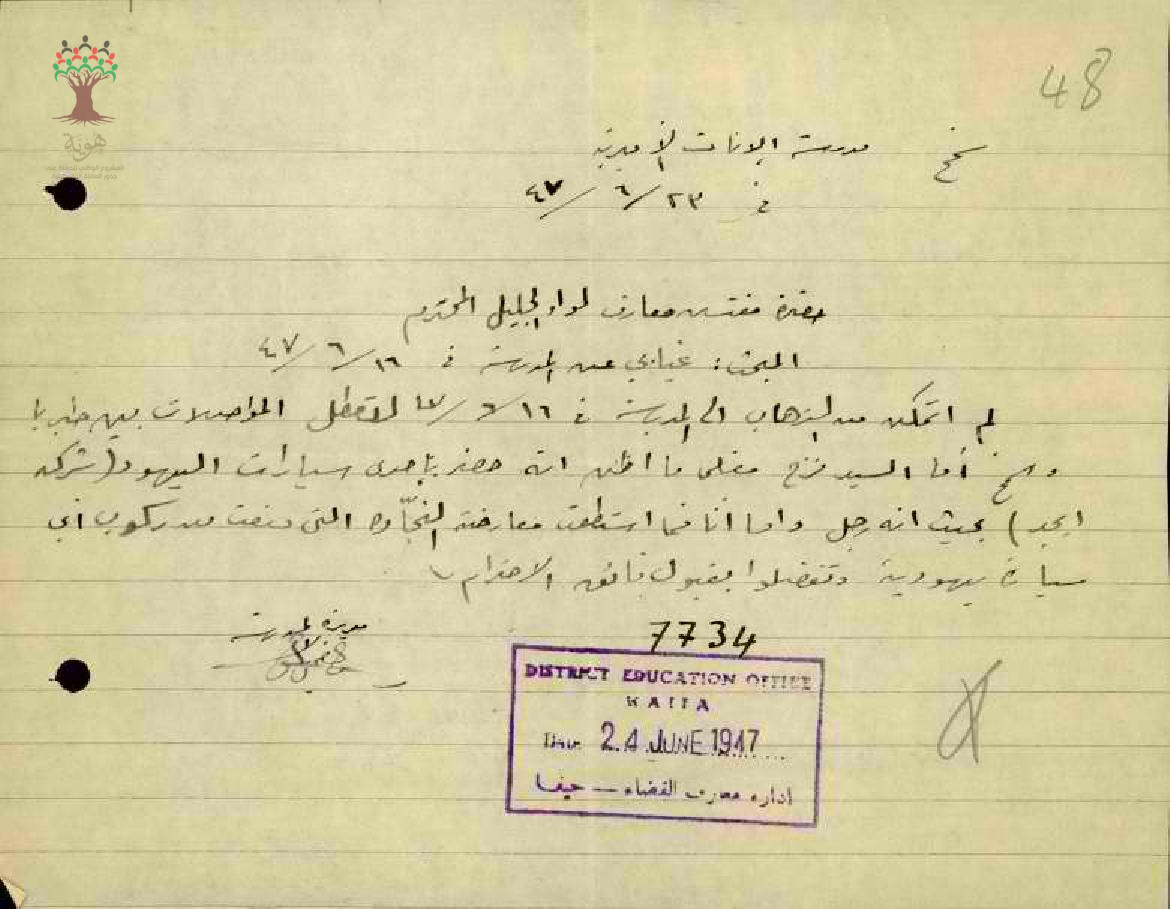 48
مدرسة الإناث الأميرية سمخ
في ٢٣/٦/٤٧
حضرة مفتش معارف لواء الجليل المحترم
المبحث: غيابي عن المدرسة في ١٦/٦/٤٧
لم اتمكن من الذهاب الى المدرسة في ١٦/٦/٤٧ لتعطل المواصلات بين طبريا
وسمخ أما السيد فرح فعلى ما اظن انه حضر بإحدى سيارات اليهود (شركة
ايجد) بحيث انه رجل واما أنا فما استطعت معارضة النجّادة التي منعت من ركوب أي
سيارة يهودية وتفضلوا بقبول فائق الاحترام
مديرة المدرسة
7734
DISTRICT EDUCATION OFFICE
HAIFA
Date 24 JUNE 1947
ادارة معارف القضاء — حيفا
هوية